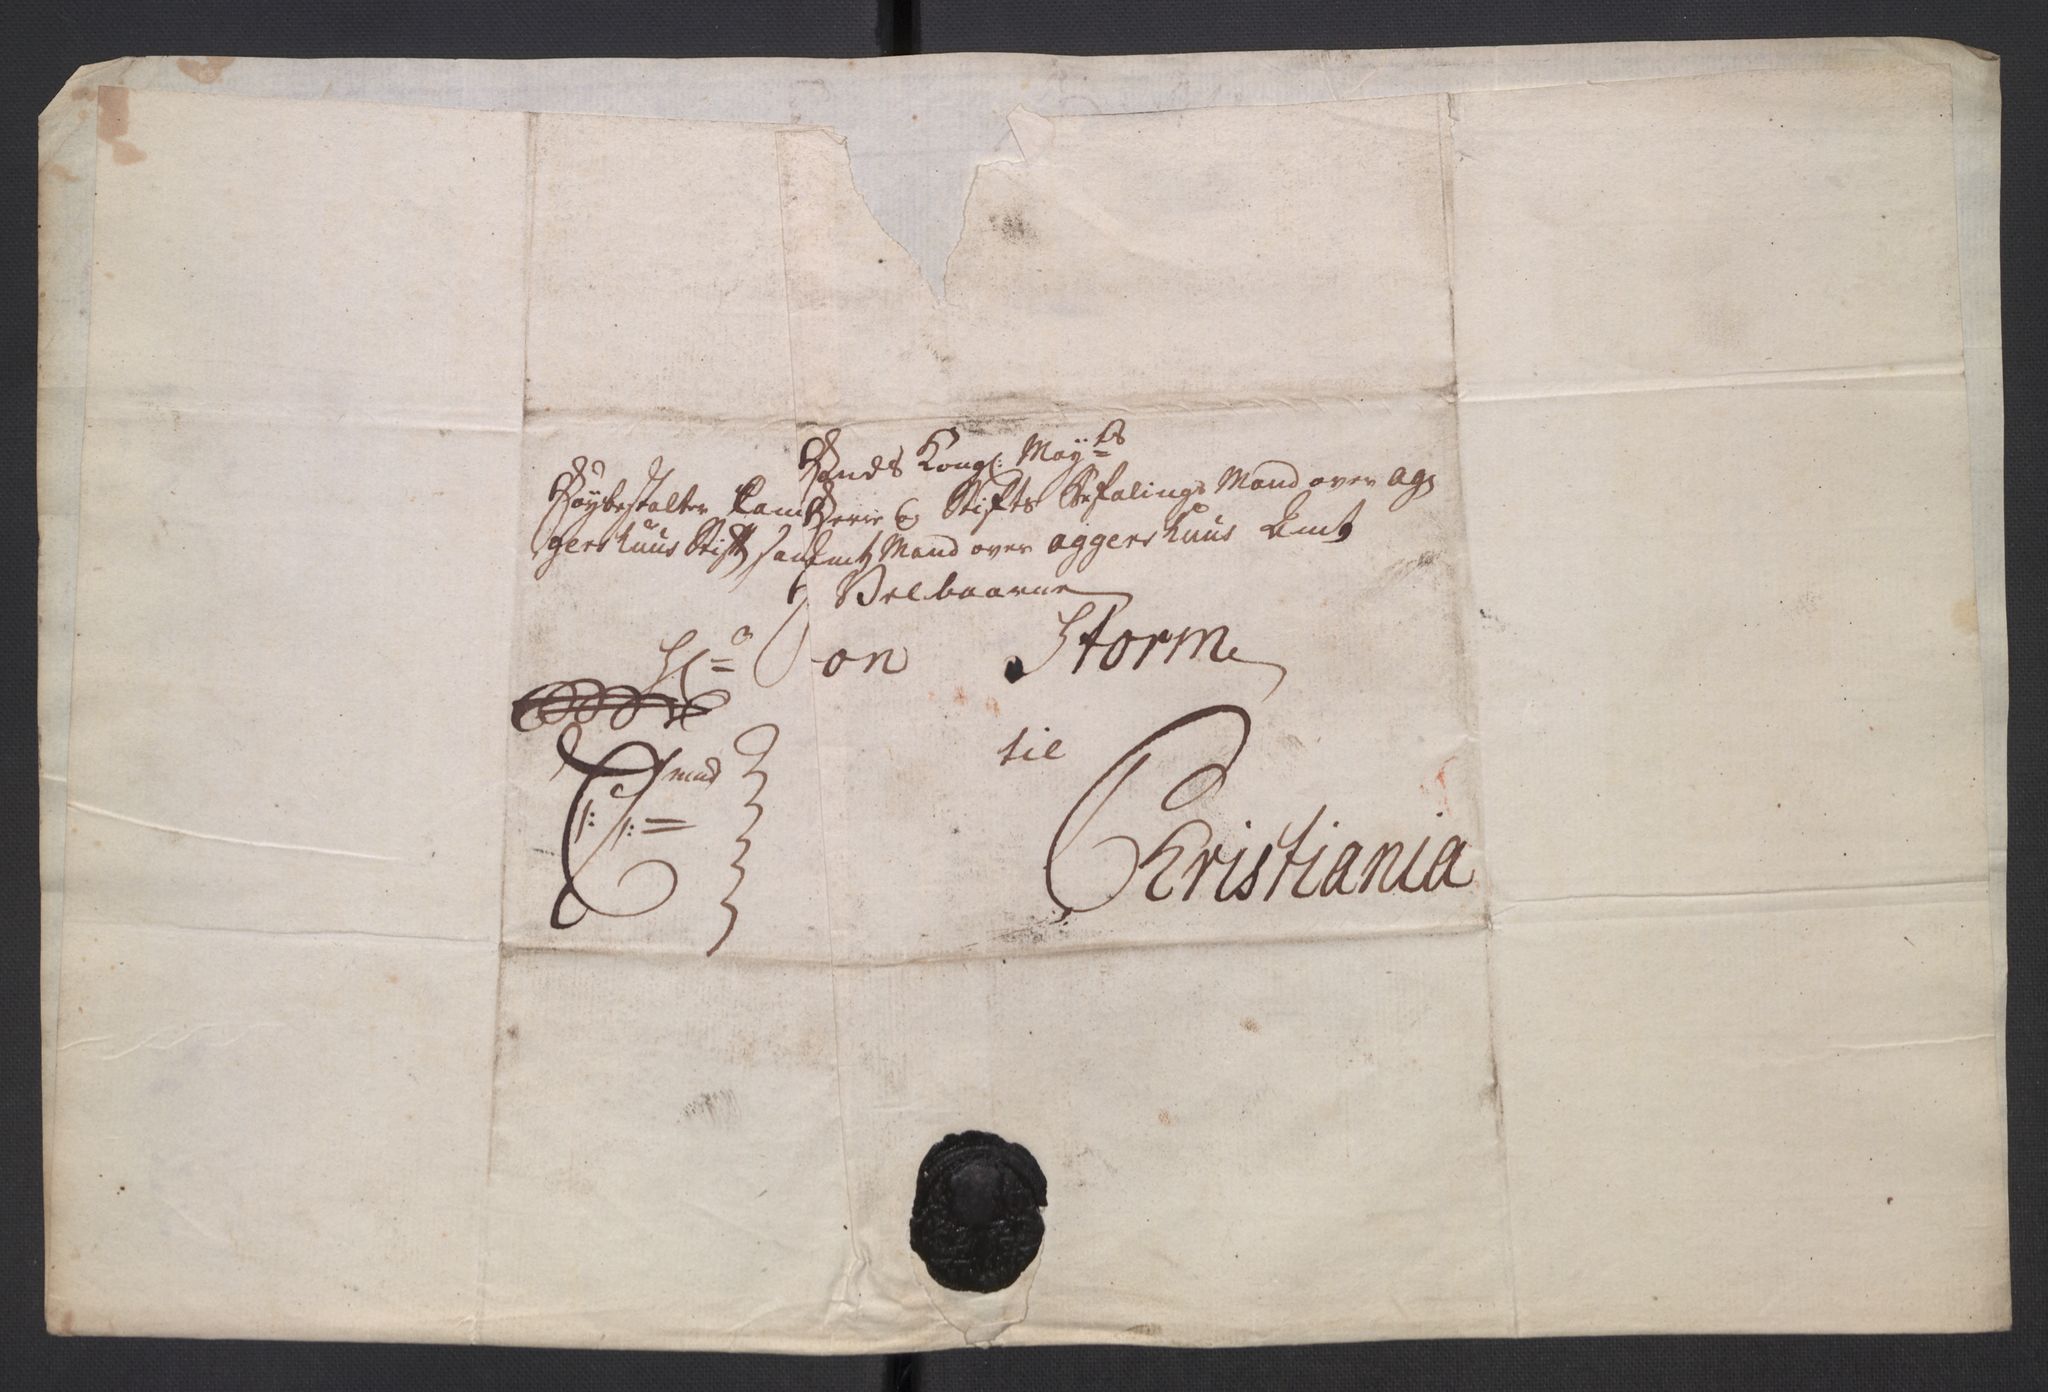 Hands Kongl: May:ts
Høybestalter Cam Herre og Stifts Befalings Mand over Ag¬
gershuus Stift samt Amt Mand over Aggershuus Amt
Velbaarne
Hr: von Storm
til
Christiania